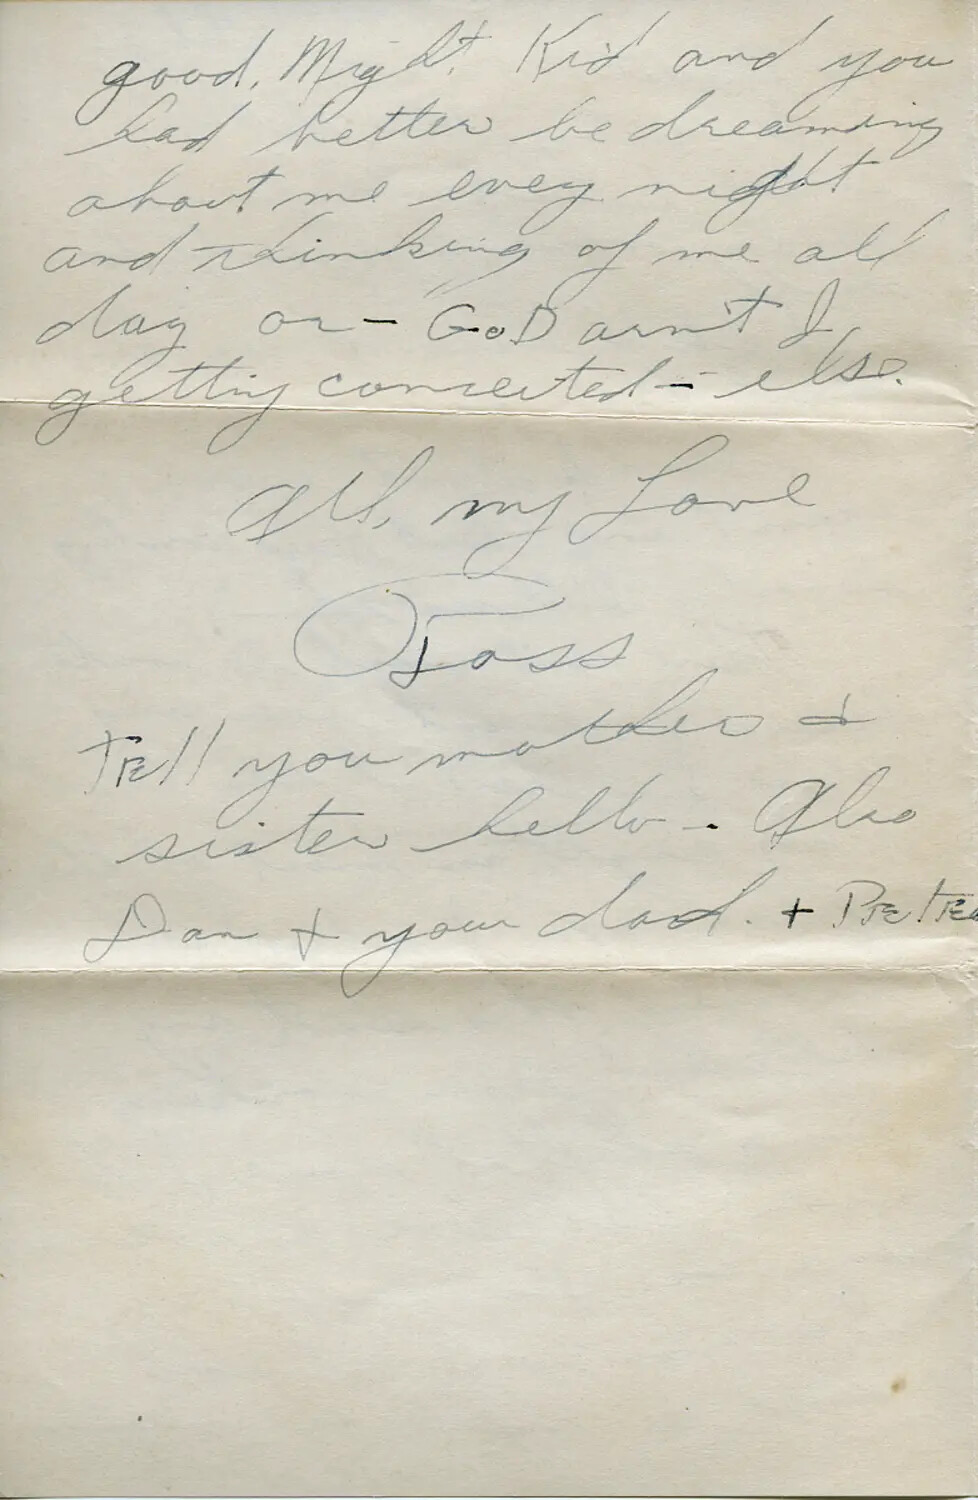 good. Night Kid and you
had better be dreaming
about me evey night
and thinking of me all
day or - GOD arn't I
getting conceited - else.
All my Love
Foss
Tell you mother &
sister hello - . Also
Dan & your dad. + Pete